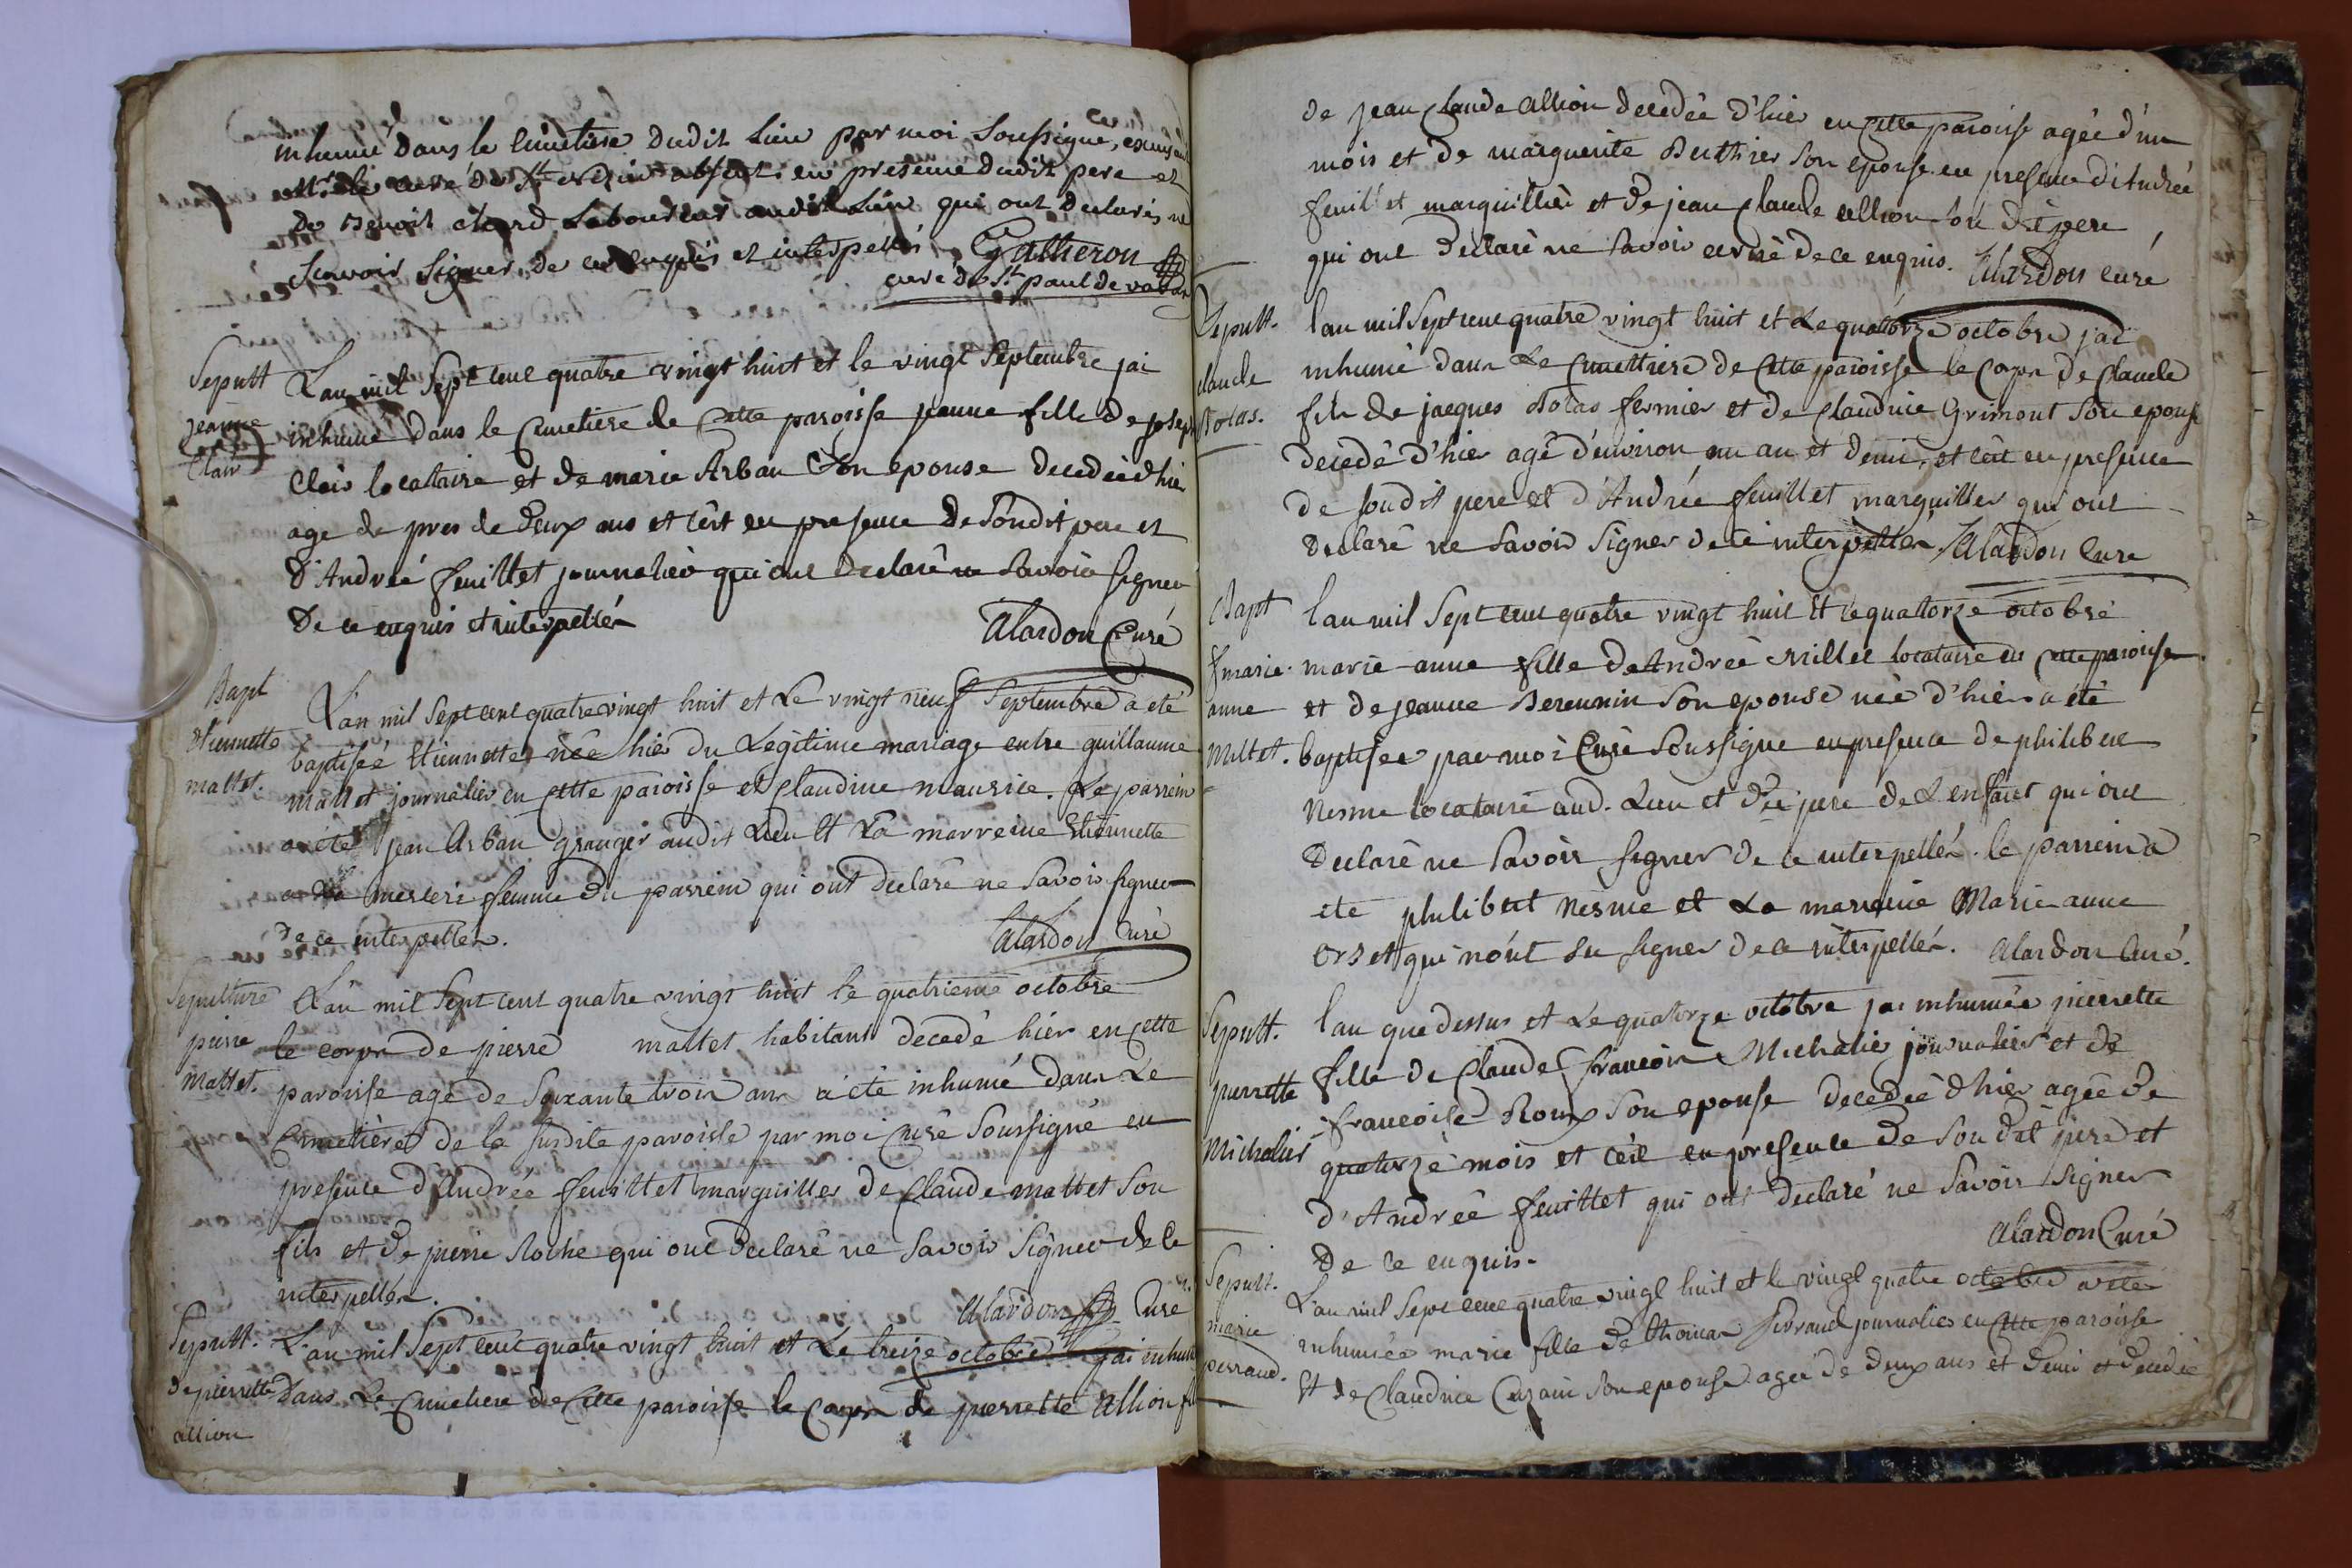 inhumé dans le cimetiere dudit Lieu par moi soussigné,
curé de St absent. en presence dudit pere et
de Benoit Laboureur audit Lieu qui ont declarés ne
scavoir signer de ce enquis et interpellés Gatheron
curé de St paul de
Sepult
jeanne
Clair
L'an mil sept cent quatre vingt huit et le vingt septembre jai
inhumé dans le cimetiere de cette paroisse jeanne fille de joseph
Clair locattaire et de marie Arban son epouse decedée dhier
age de pres de deux ans et c'est en presence de sondit pere et
d'Andreé feuillet journalier qui ont declaré ne savoir signer
de ce enquis et interpellés
Alardon Curé
Bapt
etiennette
mallet.
L'an mil sept cent quatre vingt huit et le vingt neuf septembre a eté
baptisée Etiennette née hier du Legitime mariage entre guillaume
mallet journalier en cette paroisse et Claudine maurice. Le parrein
a eté jean Arban granger audit Lieu et La marreine Etiennette
femme du parrein qui ont declaré ne savoir signer
de ce interpellés.
Alardon Curé
Sepulture
pierre
mallet.
L'an mil sept cent quatre vingt huit le quatrieme octobre
le corps de pierre mallet habitant decedé hier en cette
paroisse agé de soixante trois ans a eté inhumé dans le
cimetiere de la susdite paroisse par moi curé soussigné en
presence d'Andreé feuillet marguiller de Claude mallet son
fils et de pierre Roche qui ont declaré ne savoir signer de ce
interpellés.
Alardon Curé
Sepult.
de pierrette
allion
L'an mil sept cent quatre vingt huit et le treize octobre jai inhumé
dans le cimetiere de cette paroisse le corps de pierrette allion
de jean Claude allion decedée d'hier en cette paroisse agée d'un
mois et de marguerite Berthier son epouse en presence d'Andreé
feuillet marguillier et de jean Claude allion son dt pere
qui ont declaré ne savoir de ce enquis. Alardon curé
Sepult.
claude
l'an mil sept cent quatre vingt huit et le quatorze octobre jai
inhumé dans le cimettiere de cette paroisse le corps de Claude
fils de jacques fermier et de Claudine Grimont son epouse
decedé d'hier agé d'environ un an et demi, et c'est en presence
de soudit pere et d'Andreé feuillet marguiller qui ont
declaré ne savoir signer de ce interpellés. Alardon Curé
Bapt
marie
anne
Millet.
l'an mil sept cent quatre vingt huit et le quattorze octobre
marie anne fille de Andreé Millet locataire en cette paroisse
et de jeanne son epouse née d'hier a été
baptisee par moi Curé soussigné en presence de philibert
Nesme locataire aud. Lieu et du pere de L'enfant qui ont
declaré ne savoir signer de ce interpellés. le parrein a
ete philibert Nesme et la marreine Marie anne
Orset qui n'ont su signer de ce interpellés. Alardon Curé.
Sepult.
pierrette
Michalier
l'an que dessus et le quatorze octobre jai inhumée pierrette
fille de Claude François Michalier journalier et de
françoise Roux son epouse decedeé d'hier agée de
quatorze mois et c'est en presence de son dit pere et
d'Andreé feuillet qui ont declaré ne savoir signer
de ce enquis.
Alardon Curé
Sepult.
marie
perraud.
L'an mil sept cent quatre vingt huit et le vingt quatre octobre a eté
inhumée marie fille de thomas perraud journalier en cette paroisse
et de Claudine son epouse agée de deux ans et demi et decedée